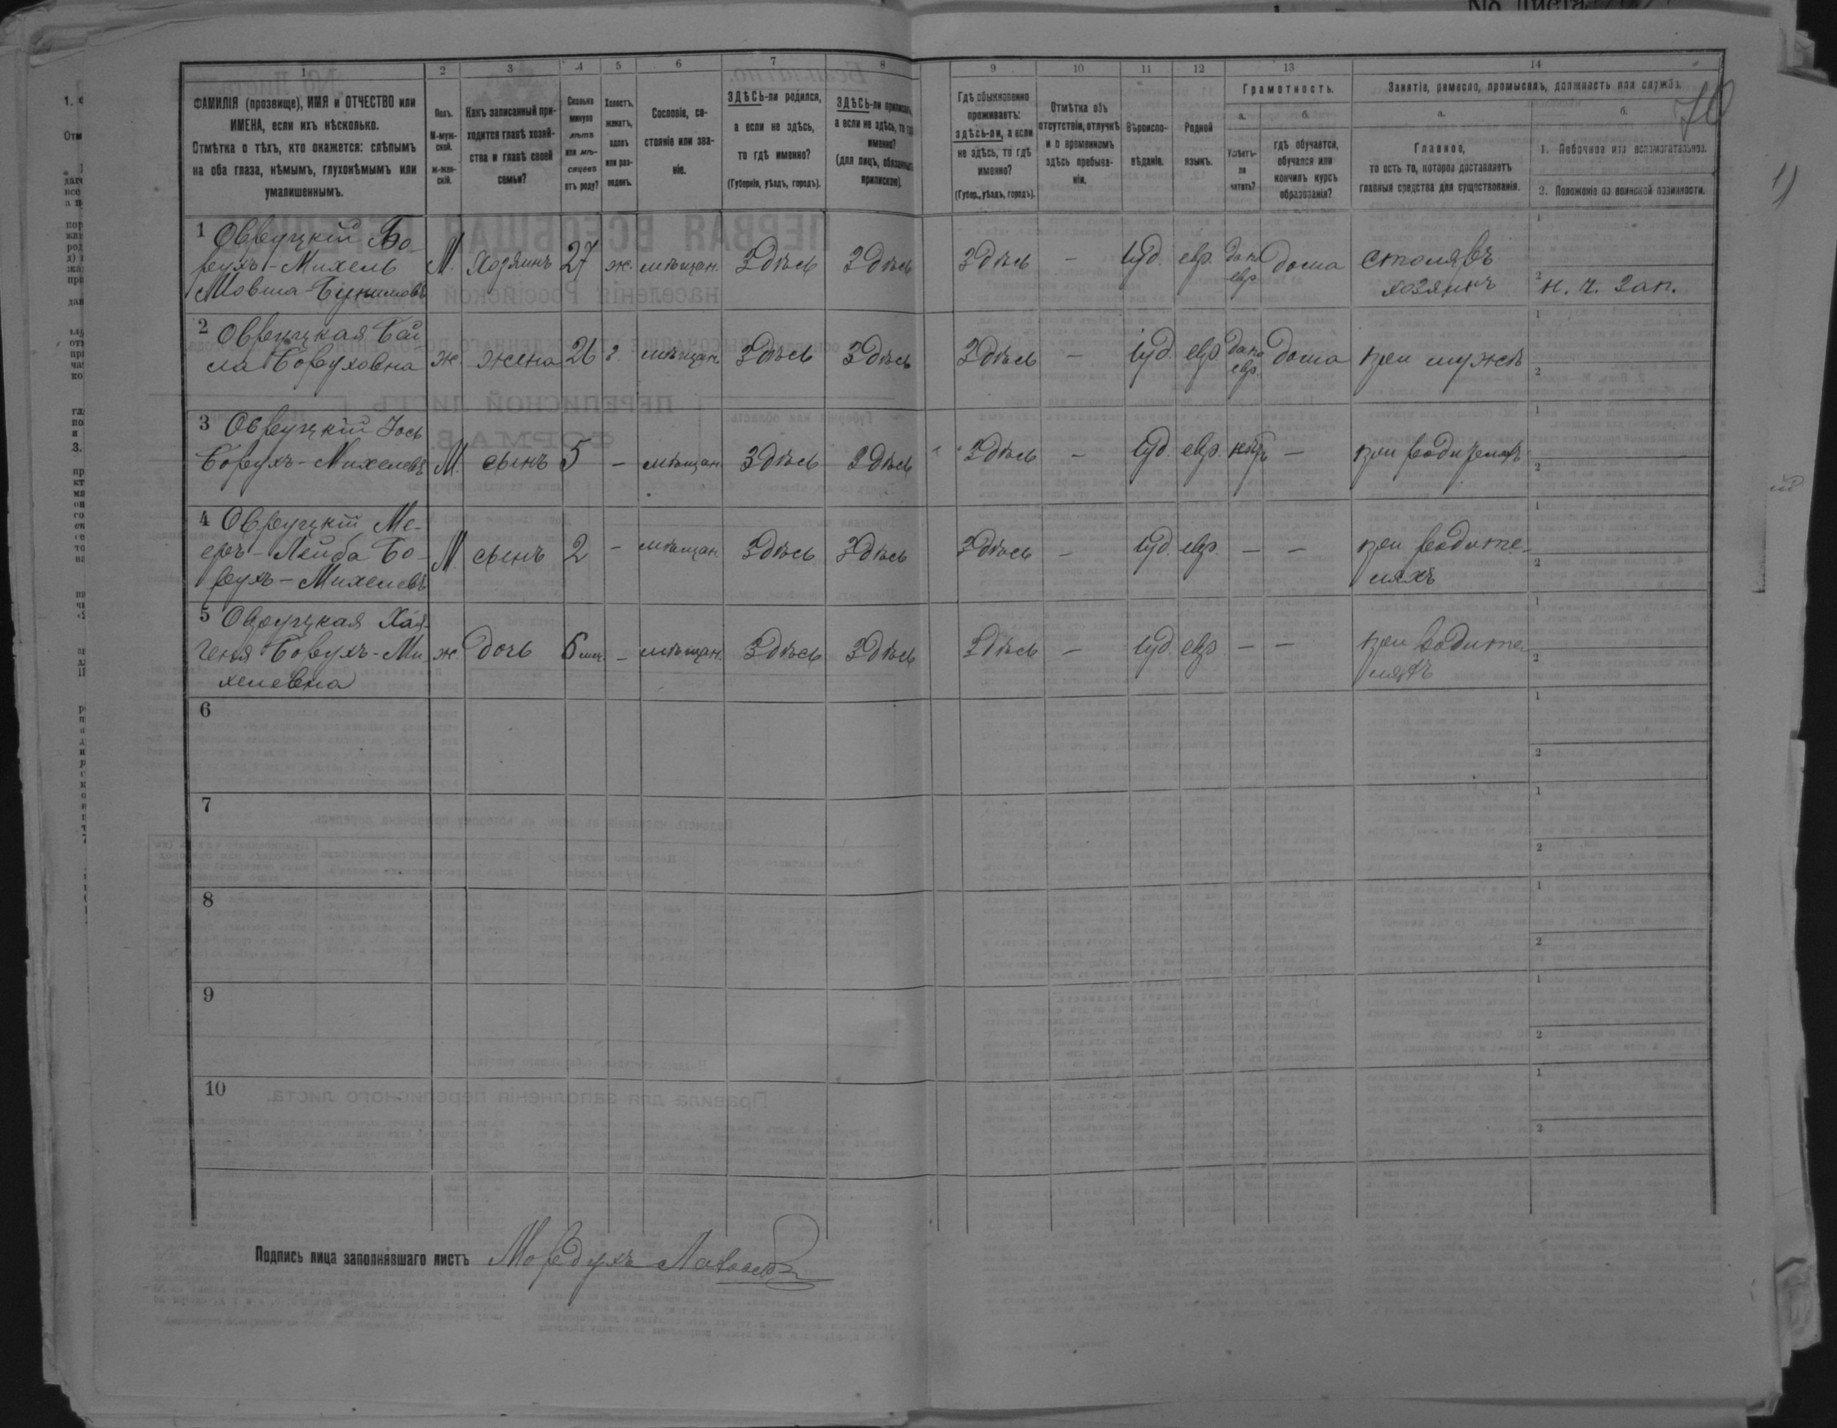 No Листа
1 2 3 4 5 6 7 8 9 10 11 12 13 14
ФАМИЛІЯ (прозвище), ИМЯ и ОТЧЕСТВО или
ИМЕНА, если ихъ нѣсколько.
Отмѣтка о тѣхъ, кто окажется: слѣпымъ
на оба глаза, нѣмымъ, глухонѣмымъ или
умалишеннымъ.
Полъ.
М-муж-
ской.
ж-жен-
скій.
Какъ записанный при-
ходится главѣ хозяй-
ства и главѣ своей
семьи?
Сколько
минуло
лѣтъ
или мѣ-
сяцевъ
отъ роду?
Холостъ,
женатъ,
вдовъ
или раз-
веденъ.
Сословіе, со-
стояніе или зва-
ніе.
ЗДѢСЬ-ли родился,
а если не здѣсь,
то гдѣ именно?
(Губернія, уѣздъ, городъ).
ЗДѢСЬ-ли приписанъ,
а если не здѣсь, то гдѣ
именно?
(для лицъ, обязанныхъ
припиской).
Гдѣ обыкновенно
проживаетъ:
здѣсь-ли, а если
не здѣсь, то гдѣ
именно?
(Губер., уѣздъ, городъ).
Отмѣтка объ
отсутствіи, отлучкѣ
и о временномъ
здѣсь пребыва-
ніи.
Вѣроиспо-
вѣданіе.
Родной
языкъ.
Грамотность.
а.
Умѣетъ-
ли
читать?
б.
гдѣ обучается,
обучался или
кончилъ курсъ
образованія?
Занятіе, ремесло, промыселъ, должность или служба.
а.
Главное,
то есть то, которое доставляетъ
главныя средства для существованія.
б.
1. Побочное или вспомогательное.
2. Положеніе по воинской повинности.
70
1 Овруцкій Бо-
рухъ-Михель
Мовша-Бунимовъ М. хозяинъ 27 ж. мѣщан. Здѣсь Здѣсь Здѣсь – іуд. евр. да по евр. дома столяръ
хозяинъ н. ч. зап.
2 Овруцкая Бай-
ла Боруховна ж жена 26 з. мѣщан. Здѣсь Здѣсь Здѣсь – іуд. евр да по евр. дома при мужѣ
3 Овруцкій Іось
Борухъ-Михелевъ М. сынъ 5 – мѣщан. Здѣсь Здѣсь Здѣсь – іуд. евр. нѣтъ – при родителяхъ
4 Овруцкій Ме-
еръ-Лейба Бо-
рухъ-Михелевъ М сынъ 2 – мѣщан. Здѣсь Здѣсь Здѣсь – іуд. евр. – – при родите-
ляхъ
5 Овруцкая Хая-
Геня Борухъ-Ми
хелевна ж дочь 6 мѣс. – мѣщан. Здѣсь Здѣсь Здѣсь – іуд. евр – – при родите
ляхъ
6
7
8
9
10
Подпись лица заполнявшаго листъ Мордухъ